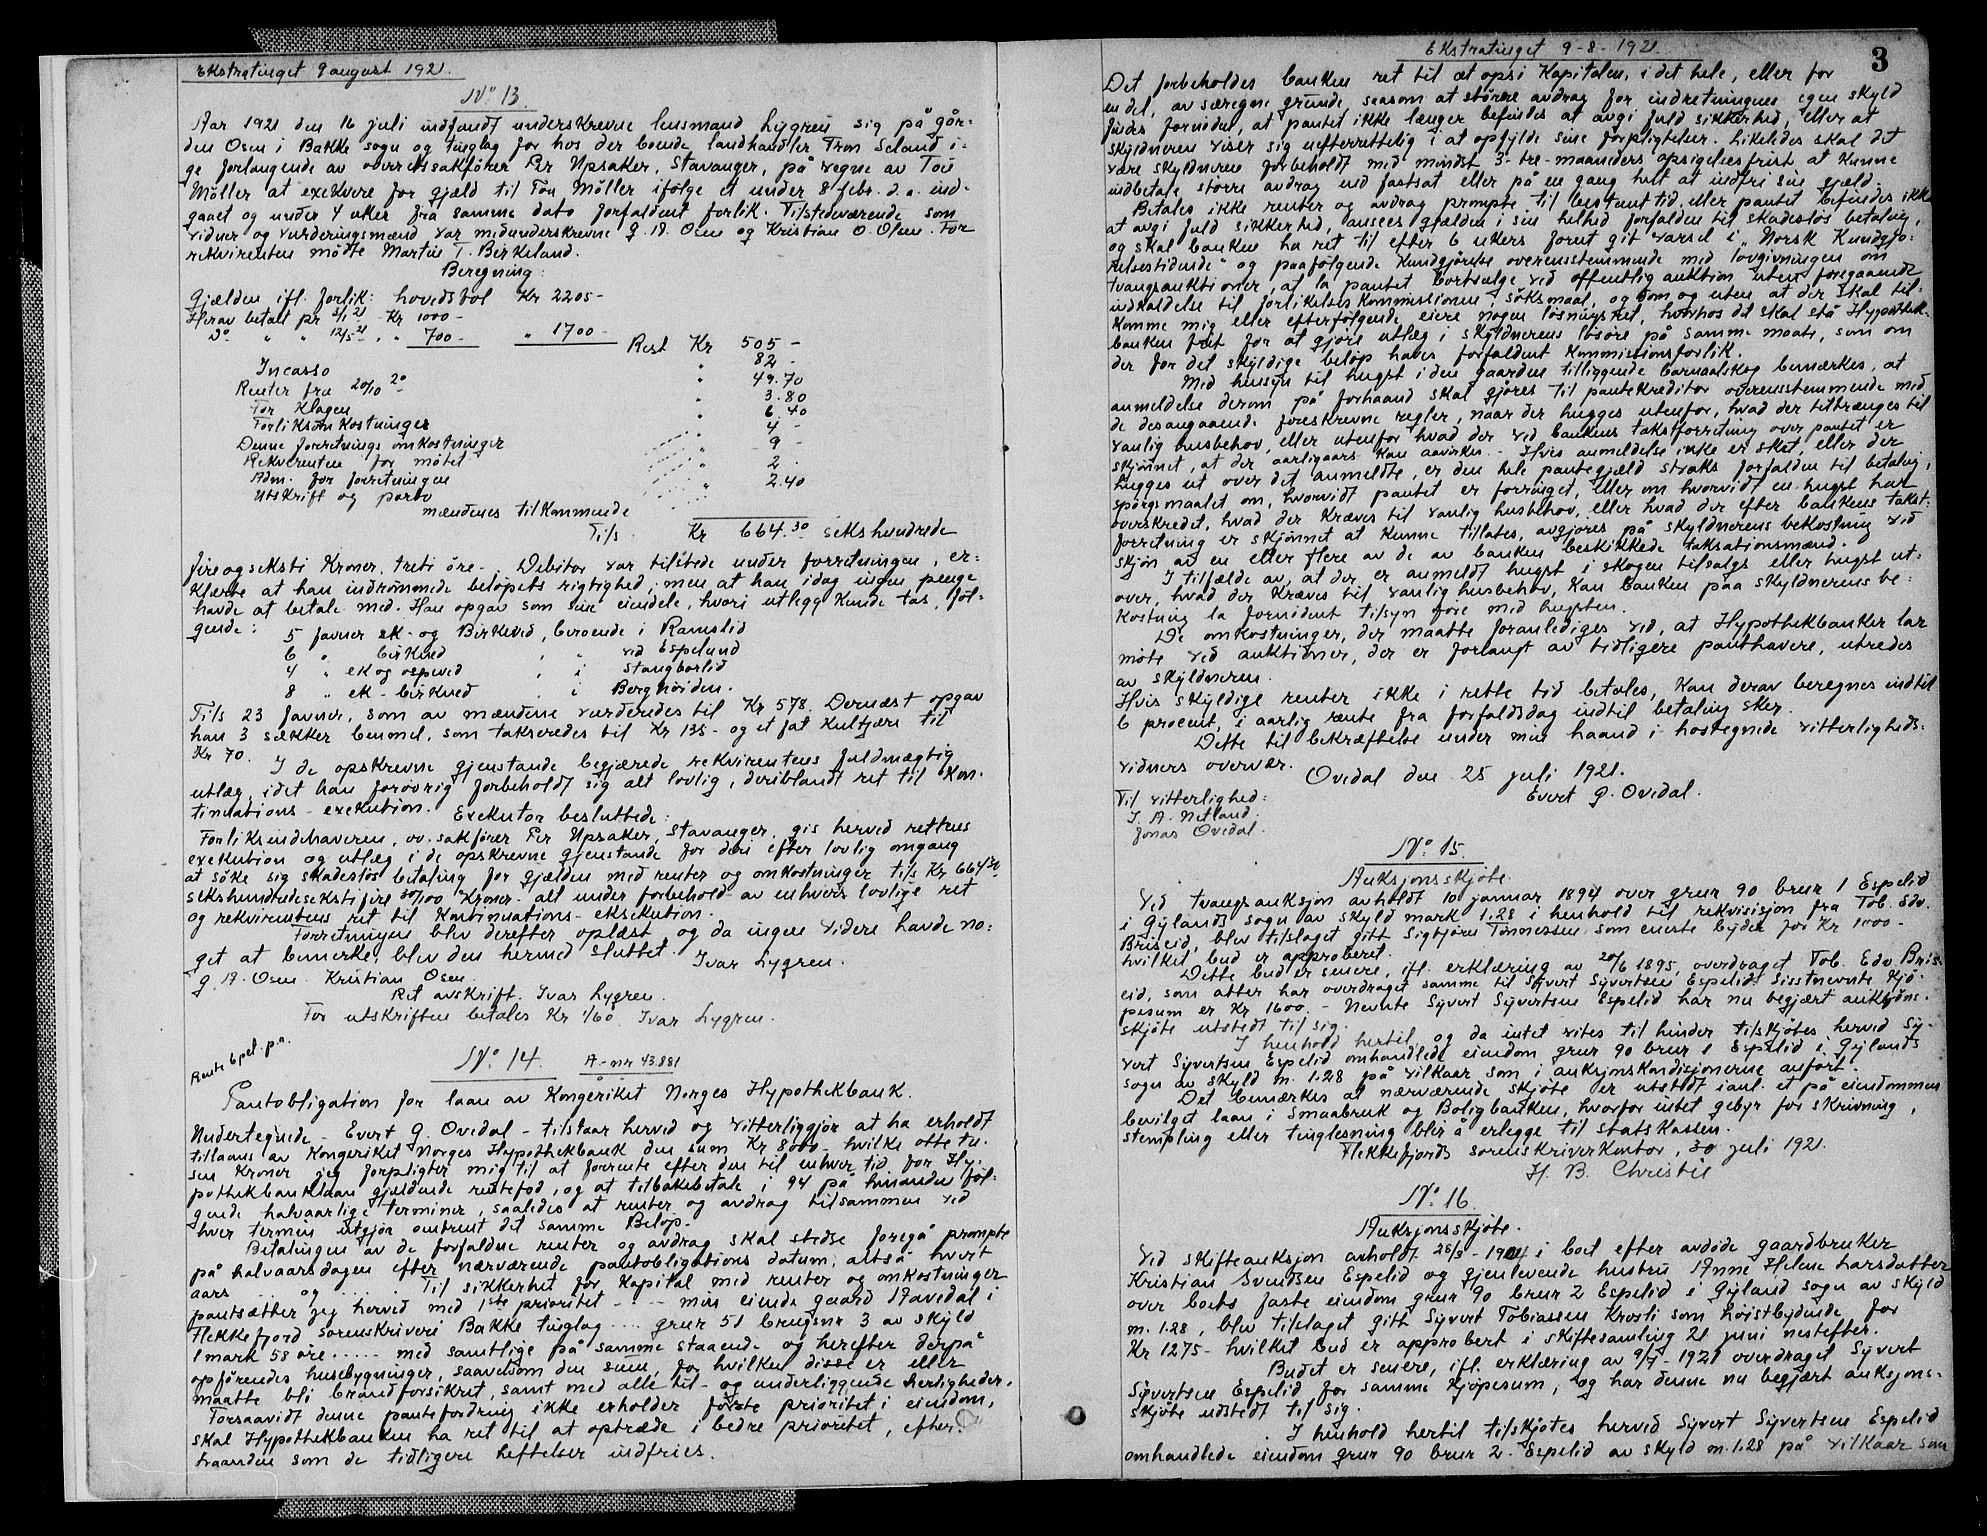 Ekstratinget 9 august 1921.
No 13.
Aar 1921 den 16 juli indfandt underskrevne lensmand Lygren sig på går-
den Osen i Bakke sogn og tinglag for hos der boende landhandler Tron Seland i-
ge forlangende av overretssakfører Per Upsaker, Stavanger, på vegne av Tou
Møller at exekvere for gjæld til Tou Møller ifølge et under 8 febr. d.a. ind-
gaaet og under 4 uker fra samme dato forfaldent forlik. Tilstedeværende som
vidner og vurderingsmænd var medunderskrevne G. A. Osen og Kristian O. Osen. For
rekvirenten møtte Martin T. Birkeland.
Beregning:
Gjælden ifl. forlik: hovedstol Kr 2205 -
Herav betalt pr 3/1 21 - Kr 1000 -
Do " " 12/5 21 " " 700 - " 1700 -
Rest Kr 505 -
Incasso " 82 -
Renter fra 20/10 20 " 49.70
For klagen " 3.80
Forliksomkostninger " 6.40
Denne forretnings omkostninger " 4 -
Rekvirenten for møtet " 9 -
Adm. for forretningen " 2 -
Utskrift og porto " 2.40
mændenes tilkommende
Tils. Kr 664.30 sekshundrede
fireogseksti Kroner, treti øre -. Debitor var tilstede under forretningen, er-
klærte at han indrømmede beløpets rigtighed, men at han idag ingen penge
havde at betale med. Han opgav som sine eiendele, hvori utlegg kunde tas, føl-
gende:
5 favner ek- og Birkeved, beroende i Ramslid
6 " birkeved " " ved Espelund
4 " ek og ospeved " i Stangborlid
8 " ek - birkved " i Berghøiden.
Tils 23 favner, som av mændene vurderedes til Kr 578. Dernæst opgav
han 3 sækker hvetmel, som takseredes til Kr 135 - og et fat kultjære til
Kr 70.
I de opskrevne gjenstande begjærede rekvirentens fuldmægtig
utlæg, idet han forøvrig forbeholdt sig alt lovlig, deriblandt ret til Kon-
tinuations - exekution. Exekutor besluttede:
Forliksindehaveren, ov. sakfører Per Upsaker, Stavanger, gis herved rettens
exekution og utlæg i de opskrevne gjenstande for deri efter lovlig omgang
at søke sig skadesløs betaling for gjælden med renter og omkostninger tils Kr 664 30
sekshundredesekstifire 30/100 Kroner - alt under forbehold av enhvers lovlige ret
og rekvirentens ret til Kontinuations - eksekution.
Forretningen blev derefter oplæst, og da ingen videre havde no-
get at bemerke, blev den hermed sluttet. Ivar Lygren.
G. A. Osen Kristian Osen
Ret avskrift. Ivar Lygren.
For utskriften betales Kr 1/60 Ivar Lygren.
Rente 6 pct. p.a.
No 14. A - nr 43.881
Pantobligation for laan av Kongeriket Norges Hypothekbank.
Undertegnede - Evert G. Ovedal - tilstaar herved og vitterliggjør at ha erholdt
tillaans av Kongeriket Norges Hypothekbank den sum Kr 8000 - hvilke otte tu-
sen Kroner jeg forpligter mig til at forrente efter den til enhver tid for Hy-
pothekbanklaan gjældende rentefod, og at tilbakebetale i 94 på hinanden føl-
gende halvaarlige terminer, saaledes at renter og avdrag tilsammen ved
hver termin utgjør omtrent det samme Beløp.
Betalingen av de forfaldne renter og avdrag skal stedse foregå prompte
på halvaarsdagen efter nærværende pantobligations datum, altså hvert
aars ... og ... Til sikkerhet for Kapital med renter og omkostninger
pantsætter jeg herved med 1ste prioritet - - - min eiende gaard Aavedal i
Flekkefjord sorenskriveri Bakke tinglag .... grnr 51 brugsnr 3 av skyld
1 mark 58 øre ..... med samtlige på samme staaende og herefter derpå
opførendes husebygninger, saavelsom den sum, for hvilken disse er eller
maatte bli brandforsikret, samt med alle til- og underliggende herligheder.
Forsaavidt denne pantefordring ikke erholder første prioritet i eiendom,
skal Hypothekbanken ha ret til at optræde i bedre prioritet, efter-
haanden som de tidligere heftelser indfries.
Ekstratinget 9-8-1921.
3
Det forbeholdes banken ret til at opsi Kapitalen, i det hele, eller for
en del, av særegne grunde, saasom at større avdrag for indretningens egen skyld
findes fornødent, at pantet ikke længer befindes at avgi fuld sikkerhed, eller at
skyldneren viser sig uefterrettelig i at opfylde sine forpligtelser. Likeledes skal det
være skyldneren forbeholdt med mindst 3 - tre - maaneders opsigelsesfrist at kunne
indbetale større avdrag end fastsat eller på en gang helt at indfri sin gjæld.
Betales ikke renter og avdrag prompte til bestemt tid, eller pantet befindes ikke
at avgi fuld sikkerhed, ansees gjælden i sin helhed forfalden til skadesløs betaling,
og skal banken ha ret til efter 6 ukers forut git varsel i "Norsk Kundgjø-
relsestidende" og paafølgende Kundgjørelse overensstemmende med lovgivningen om
tvangsauktioner, at la pantet bortsælge ved offentlig auktion uten foregaaende
indkaldelse til forlikelseskommissionen, søksmaal, og dom og uten at der skal til-
komme mig eller efterfølgende eiere nogen løsningsret, hvorhos det skal stå Hypothek-
banken frit for at gjøre utlæg i skyldnerens løsøre på samme maate, som om
der for det skyldige beløp haves forfaldent Kommissionsforlik.
Med hensyn til hugst i den gaarden tilliggende barnaalskog bemærkes, at
anmeldelse derom på forhaand skal gjøres til pantekreditor overensstemmende med
de desangaaende foreskrevne regler, naar der hugges utenfor, hvad der tiltrænges til
vanlig husbehov, eller utenfor hvad der ved bankens takstforretning over pantet er
skjønnet, at der aarligaars kan aavirkes. - Hvis anmeldelse ikke er sket, eller der
hugges ut over det anmeldte, er den hele pantegjæld straks forfalden til betaling,
spørgsmaalet om, hvorvidt pantet er forringet, eller om hvorvidt en hugst har
overskredet, hvad der kræves til vanlig husbehov, eller hvad der efter bankens takst-
forretning er skjønnet at kunne tillates, avgjøres på skyldnerens bekostning ved
skjøn av en eller flere av de av banken beskikkede taksationsmænd.
I tilfælde av, at der er anmeldt hugst i skogen tilsalgs eller hugst ut-
over, hvad der kræves til vanlig husbehov, kan banken paa skyldnerens be-
kostning la fornødent tilsyn føre med hugsten.
De omkostninger, der maatte foranlediges ved, at Hypothekbanken lar
møte ved auktioner, der er forlangt av tidligere panthavere, utredes
av skyldneren.
Hvis skyldige renter ikke i rette tid betales, kan derav beregnes indtil
6 procent, i aarlig rente fra forfaldsdag indtil betaling sker.
Dette til bekræftelse under min haand i hostegnede vitterligheds-
vidners overvær.
Ovedal den 25 juli 1921.
Evert G. Ovedal.
Til vitterlighed:
T. A. Netland.
Jonas Ovedal.
No 15.
Auksjonsskjøte.
Ved tvangsauksjon avholdt 10 januar 1894 over grnr 90 brnr 1 Espelid
i Gylands sogn av skyld mark 1.28 i henhold til rekvisisjon fra Tob. Edv.
Briseid, blev tilslaget gitt Sigbjørn Tønnessen som eneste byder for Kr 1000 -
hvilket bud er approberet.
Dette bud er senere, ifl. erklæring av 20/6 1895, overdraget Tob. Edv. Bris-
eid, som atter har overdraget samme til Syvert Syvertsen Espelid. Sisstnevnte kjø-
pesum er Kr 1600 - Nevnte Syvert Syvertsen Espelid har nu begjært auksjons-
skjøte utstedt til sig.
I henhold hertil, og da intet vites til hinder tilskjøtes herved Sy-
vert Syvertsen Espelid omhandlede eiendom grnr 90 brnr 1 Espelid i Gylands
sogn av skyld m. 1.28 på vilkaar som i auksjonskondisjonerne anført.
Det bemærkes at nærværende skjøte er utstedt i anl. et på eiendommen
bevilget laan i Smaabruk og Boligbanken, hvorfor intet gebyr for skrivning,
stempling eller tinglesning blir å erlegge til statskassen.
Flekkefjords sorenskriverkontor, 30 juli 1921.
H. B. Christie
No 16
Auksjonsskjøte.
Ved skifteauksjon avholdt 26/3 - 1904 i boet efter avdøde gaardbruker
Kristian Svendsen Espelid og gjenlevende hustru Anne Helene Larsdatter
over boets faste eiendom grnr 90 brnr 2 Espelid i Gyland sogn av skyld
m. 1.28, blev tilslaget gitt Syvert Tobiassen Krosli som høistbydende for
Kr 1275 - hvilket bud er approbert i skiftesamling 21 juni nestefter.
Budet er senere, ifl. erklæring av 9/7 - 1921 overdraget Syvert
Syvertsen Espelid for samme kjøpesum, og har denne nu begjært auksjons-
skjøte udstedt til sig.
I henhold hertil tilskjøtes herved Syvert Syvertsen Espelid
omhandlede eiendom grnr 90 brnr 2 Espelid av skyld m. 1.28 på vilkaar som